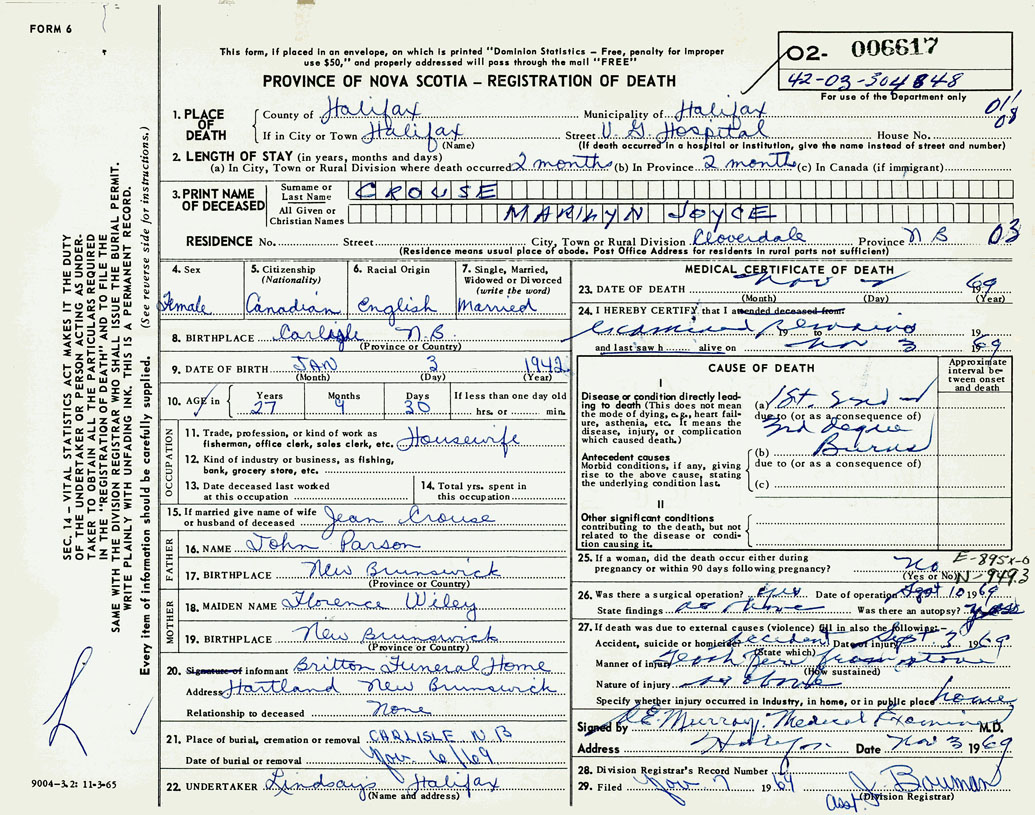 FORM 6
This form, if placed in an envelope, on which is printed "Dominion Statistics – Free, penalty for improper
use $50," and properly addressed will pass through the mail "FREE"
PROVINCE OF NOVA SCOTIA – REGISTRATION OF DEATH
02- 006617
42-03-304848
For use of the Department only
011
08
1. PLACE OF DEATH
County of Halifax Municipality of Halifax
If in City or Town Halifax Street V. G. Hospital House No.
(Name) (If death occurred in a hospital or Institution, give the name instead of street and number)
2. LENGTH OF STAY (in years, months and days)
(a) In City, Town or Rural Division where death occurred 2 months (b) In Province 2 months (c) In Canada (if immigrant)
3. PRINT NAME OF DECEASED
Surname or Last Name CROUSE
All Given or Christian Names MARILYN JOYCE
RESIDENCE No. Street City, Town or Rural Division Cloverdale Province N B 03
(Residence means usual place of abode. Post Office Address for residents in rural parts not sufficient)
4. Sex Female
5. Citizenship (Nationality) Canadian
6. Racial Origin English
7. Single, Married, Widowed or Divorced (write the word) Married
8. BIRTHPLACE Carlisle N.B.
(Province or Country)
9. DATE OF BIRTH JAN 3 1942
(Month) (Day) (Year)
10. AGE in Years 27 Months 9 Days 30 If less than one day old hrs. or min.
OCCUPATION
11. Trade, profession, or kind of work as fisherman, office clerk, sales clerk, etc. Housewife
12. Kind of industry or business, as fishing, bank, grocery store, etc.
13. Date deceased last worked at this occupation
14. Total yrs. spent in this occupation
15. If married give name of wife or husband of deceased Jean Crouse
FATHER
16. NAME John Parson
17. BIRTHPLACE New Brunswick
(Province or Country)
MOTHER
18. MAIDEN NAME Florence Wiley
19. BIRTHPLACE New Brunswick
(Province or Country)
20. Signature of informant Britton Funeral Home
Address Hartland New Brunswick
Relationship to deceased None
21. Place of burial, cremation or removal CARLISLE N B
Date of burial or removal Nov. 6/69
22. UNDERTAKER Lindsays Halifax
(Name and address)
MEDICAL CERTIFICATE OF DEATH
23. DATE OF DEATH Nov 2 1969
(Month) (Day) (Year)
24. I HEREBY CERTIFY that I attended deceased from:
Examined Remains 19 to 19
and last saw h alive on Nov 3 1969
CAUSE OF DEATH
Approximate interval between onset and death
I
Disease or condition directly leading to death (This does not mean the mode of dying, e.g., heart failure, asthenia, etc. It means the disease, injury, or complication which caused death.)
(a) 1st. 2nd
due to (or as a consequence of)
3rd degree
(b) Burns
due to (or as a consequence of)
Antecedent causes
Morbid conditions, if any, giving rise to the above cause, stating the underlying condition last.
(c)
II
Other significant conditions contributing to the death, but not related to the disease or condition causing it.
25. If a woman, did the death occur either during pregnancy or within 90 days following pregnancy? No
(Yes or No)
E-895x-0
N-9493
26. Was there a surgical operation? yes Date of operation Sept 10 1969
State findings as above Was there an autopsy? yes
27. If death was due to external causes (violence) fill in also the following:–
Accident, suicide or homicide? accident Date of injury Sept 3 1969
(State which)
Manner of injury flash fire from stove
(How sustained)
Nature of injury as above
Specify whether injury occurred in Industry, in home, or in public place home
Signed by Murray Medical Examiner M.D.
Address Halifax Date Nov 3 1969
28. Division Registrar's Record Number
29. Filed Nov 7 1969 Asst. J. Bowman
(Division Registrar)
SEC. 14 – VITAL STATISTICS ACT MAKES IT THE DUTY
OF THE UNDERTAKER OR PERSON ACTING AS UNDER-
TAKER TO OBTAIN ALL THE PARTICULARS REQUIRED
IN THE "REGISTRATION OF DEATH" AND TO FILE THE
SAME WITH THE DIVISION REGISTRAR WHO SHALL ISSUE THE BURIAL PERMIT.
WRITE PLAINLY WITH UNFADING INK. THIS IS A PERMANENT RECORD.
Every item of information should be carefully supplied. (See reverse side for instructions.)
9004-3.2: 11-3-65